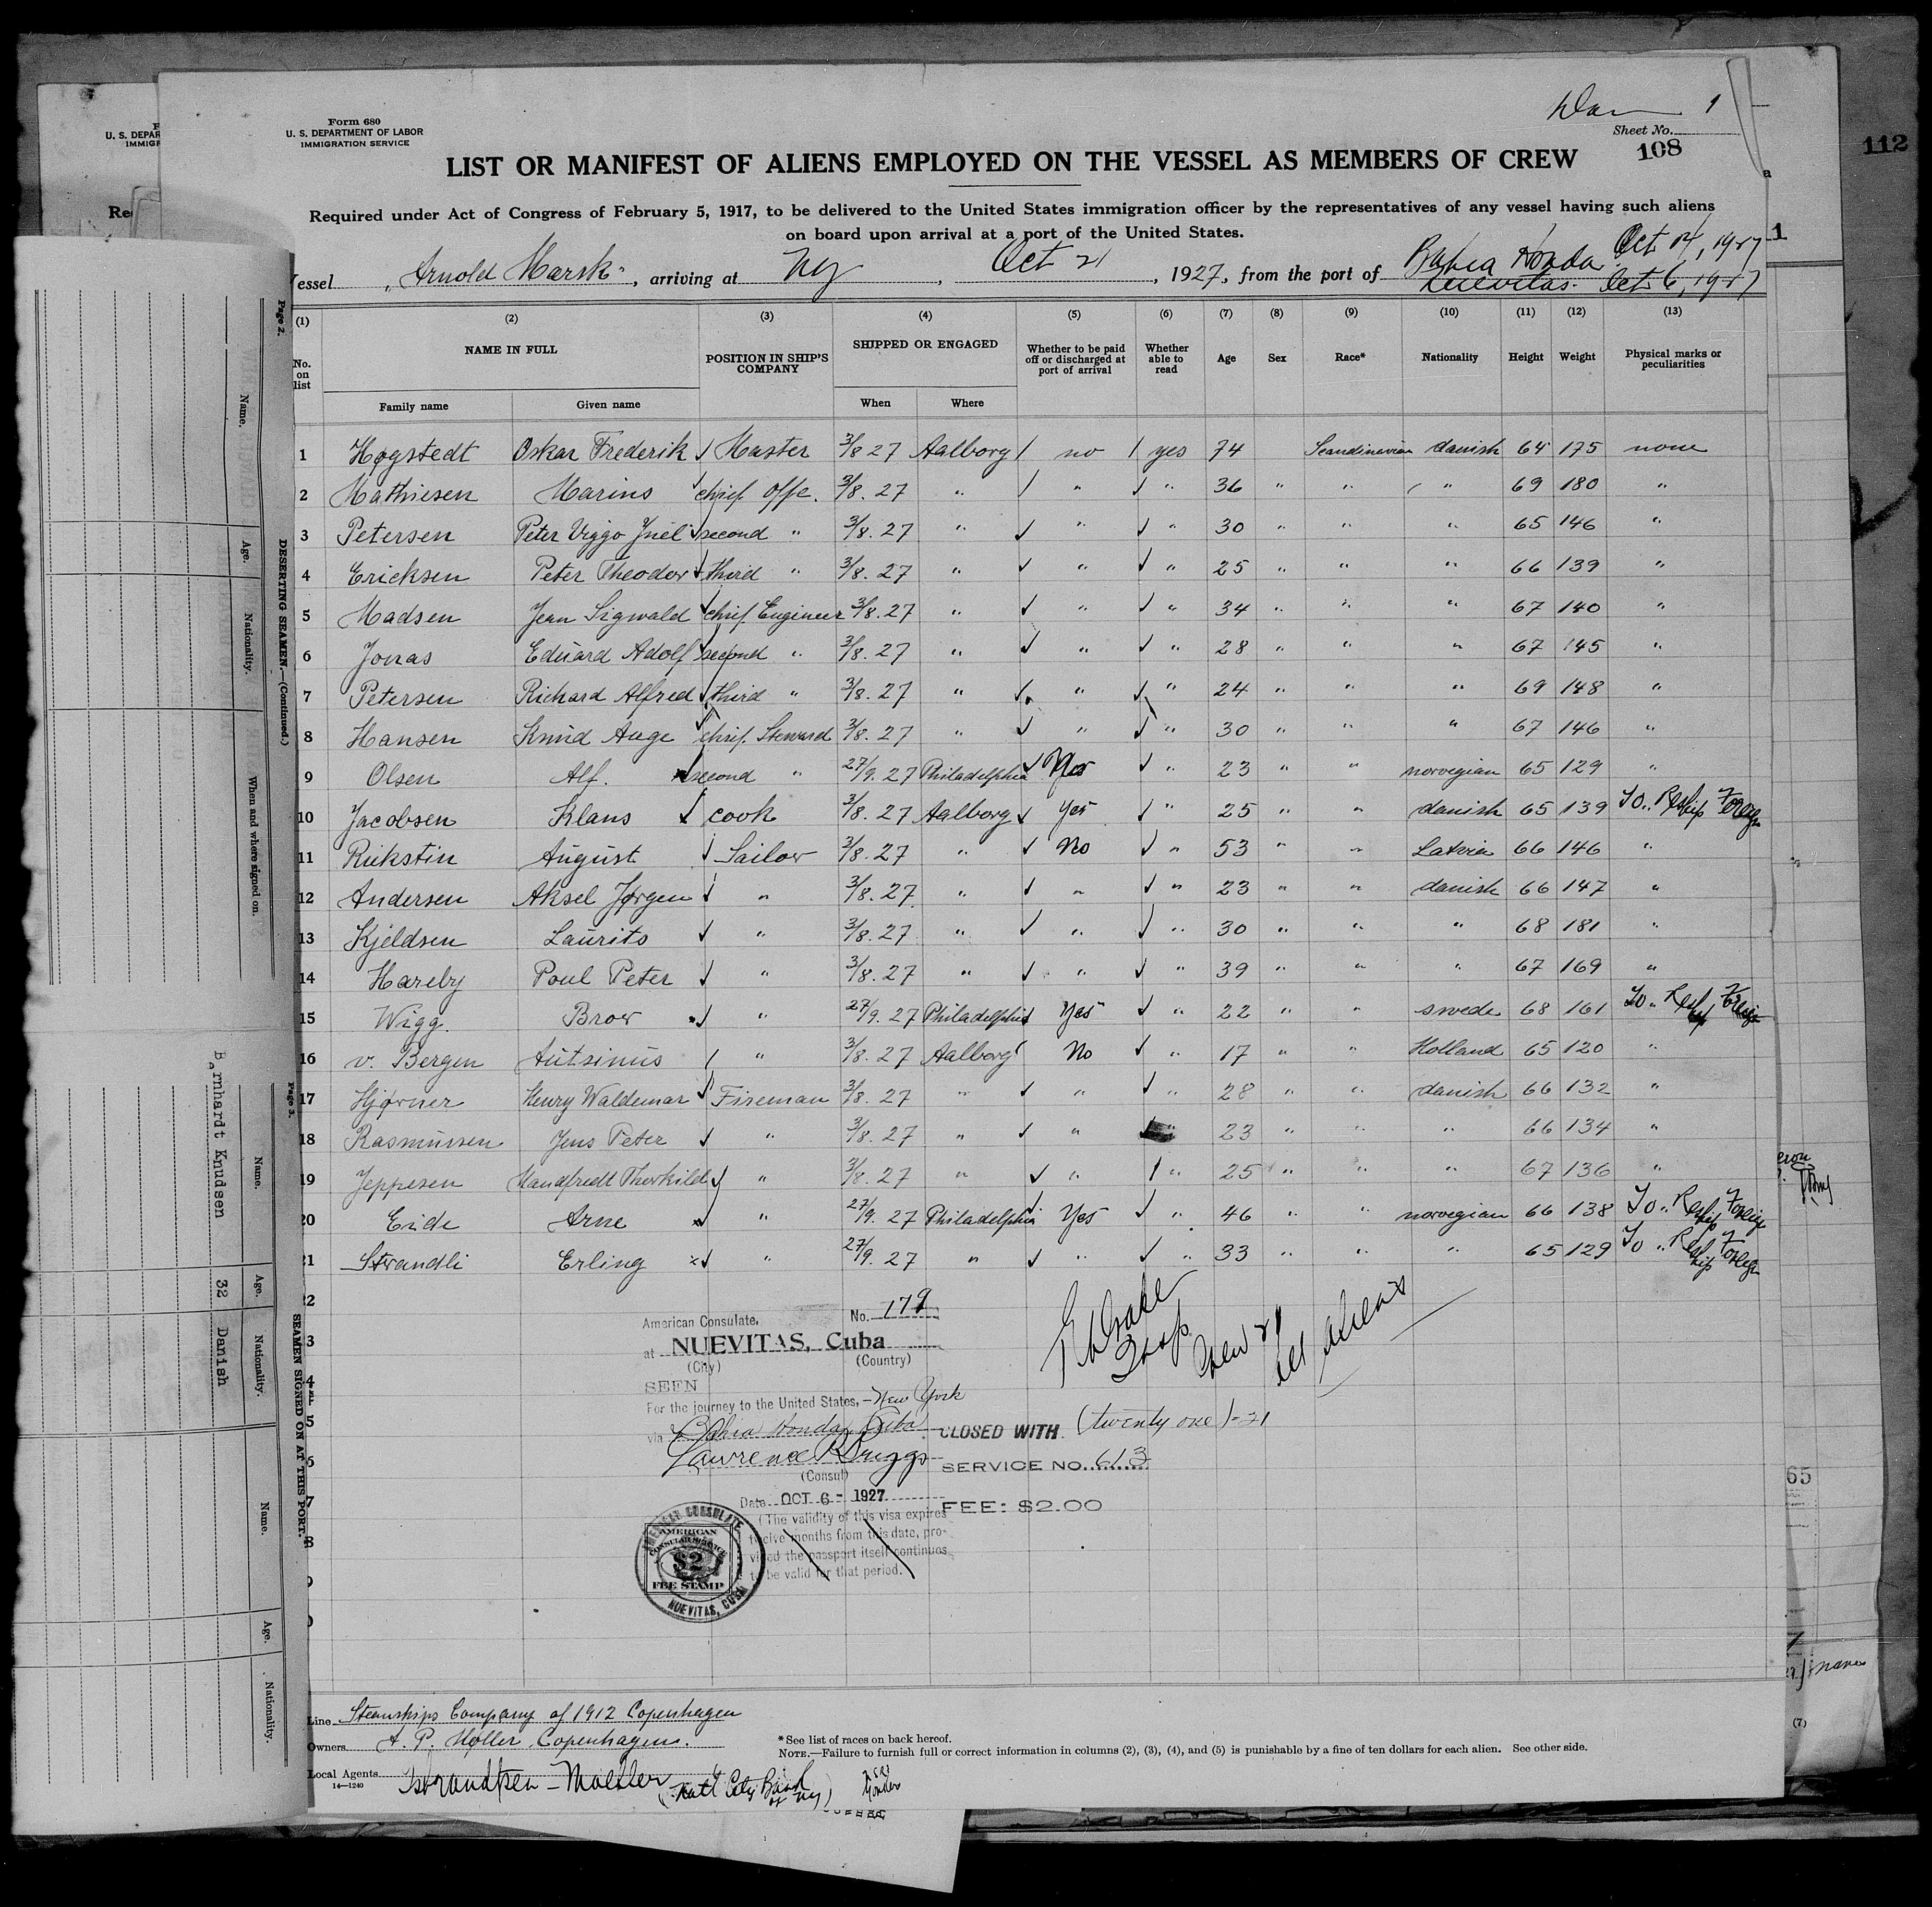 Form 680
U. S. DEPARTMENT OF LABOR
IMMIGRATION SERVICE
Dan 1
Sheet No.
108
112
LIST OR MANIFEST OF ALIENS EMPLOYED ON THE VESSEL AS MEMBERS OF CREW
Required under Act of Congress of February 5, 1917, to be delivered to the United States immigration officer by the representatives of any vessel having such aliens
on board upon arrival at a port of the United States.
Vessel "Arnold Marsk", arriving at Ny, Oct 21, 1927, from the port of Bahia Honda Oct 14, 1927
Nuevitas Oct 6, 1927
(1) (2) (3) (4) (5) (6) (7) (8) (9) (10) (11) (12) (13)
No. on list NAME IN FULL POSITION IN SHIP'S COMPANY SHIPPED OR ENGAGED Whether to be paid off or discharged at port of arrival Whether able to read Age Sex Race* Nationality Height Weight Physical marks or peculiarities
Family name Given name When Where
1 Høgstedt Oskar Frederik Master 3/8 27 Aalborg no yes 74 Scandinavian danish 64 175 none
2 Mathiesen Marius chief offc. 3/8. 27 " " " 36 " " " 69 180 "
3 Petersen Peter Viggo Juel second " 3/8. 27 " " " 30 " " " 65 146 "
4 Ericksen Peter Theodor third " 3/8. 27 " " " 25 " " " 66 139 "
5 Madsen Jean Sigwald chief Engineer 3/8. 27 " " " 34 " " " 67 140 "
6 Jonas Eduard Adolf second " 3/8. 27 " " " 28 " " " 67 145 "
7 Petersen Richard Alfred third " 3/8. 27 " " " 24 " " " 69 148 "
8 Hansen Knud Aage chief. Steward 3/8. 27 " " " 30 " " " 67 146 "
9 Olsen Alf. second " 27/9. 27 Philadelphia " 23 " " norvegian 65 129 "
10 Jacobsen Klaus cook 3/8. 27 Aalborg yes " 25 " " danish 65 139 To " Reship Foreign
11 Rickstin August Sailor 3/8. 27 " No " 53 " " Latvia 66 146 "
12 Andersen Aksel Jørgen " 3/8. 27 " " " 23 " " danish 66 147 "
13 Kjeldsen Laurits " 3/8. 27 " " " 30 " " " 68 181 "
14 Hareby Poul Peter " 3/8. 27 " " " 39 " " " 67 169 "
15 Wigg. Bror " 27/9. 27 Philadelphia Yes " 22 " " swede 68 161 To " Reship Foreign
16 v. Bergen Autsinus " 3/8. 27 Aalborg No " 17 " " Holland 65 120 "
17 Hjørner Henry Waldemar Fireman 3/8. 27 " " " 28 " " danish 66 132 "
18 Rasmussen Jens Peter " 3/8. 27 " " " 23 " " " 66 134 "
19 Jeppesen Handfredt Thorkild " 3/8. 27 " " " 25 " " " 67 136 "
20 Eide Arne " 27/9. 27 Philadelphia Yes " 46 " " norvegian 66 138 To " Reship Foreign
21 Strandli Erling " 27/9. 27 " " " 33 " " " 65 129 To " Reship Foreign
Crew 21
all Aliens
American Consulate, No. 179
at NUEVITAS, Cuba
(City) (Country)
SEEN
For the journey to the United States, - New York
via Bahia Honda, Cuba
CLOSED WITH (twenty one) - 21
Lawrence R Briggs
(Consul)
SERVICE NO. 613
Date OCT 6 - 1927
FEE: $2.00
(The validity of this visa expires
twelve months from this date, pro-
vided the passport itself continues
to be valid for that period.
AMERICAN CONSULATE
AMERICAN
CONSULAR SERVICE
$2
FEE STAMP
NUEVITAS, CUBA
Line Steamships Company of 1912 Copenhagen
Owners A. P. Møller, Copenhagen.
Local Agents Isbrandtsen - Moeller
(Natl City Bank of Ny)
14—1240
*See list of races on back hereof.
NOTE.—Failure to furnish full or correct information in columns (2), (3), (4), and (5) is punishable by a fine of ten dollars for each alien. See other side.
Page 2.
DESERTING SEAMEN.—(Continued.)
Name.
Age.
Nationality.
When and where signed on.
Page 3.
SEAMEN SIGNED ON AT THIS PORT.
Name.
Age.
Nationality.
Barnhardt Knudsen 32 Danish
Name.
Age.
Nationality.
65
(7)